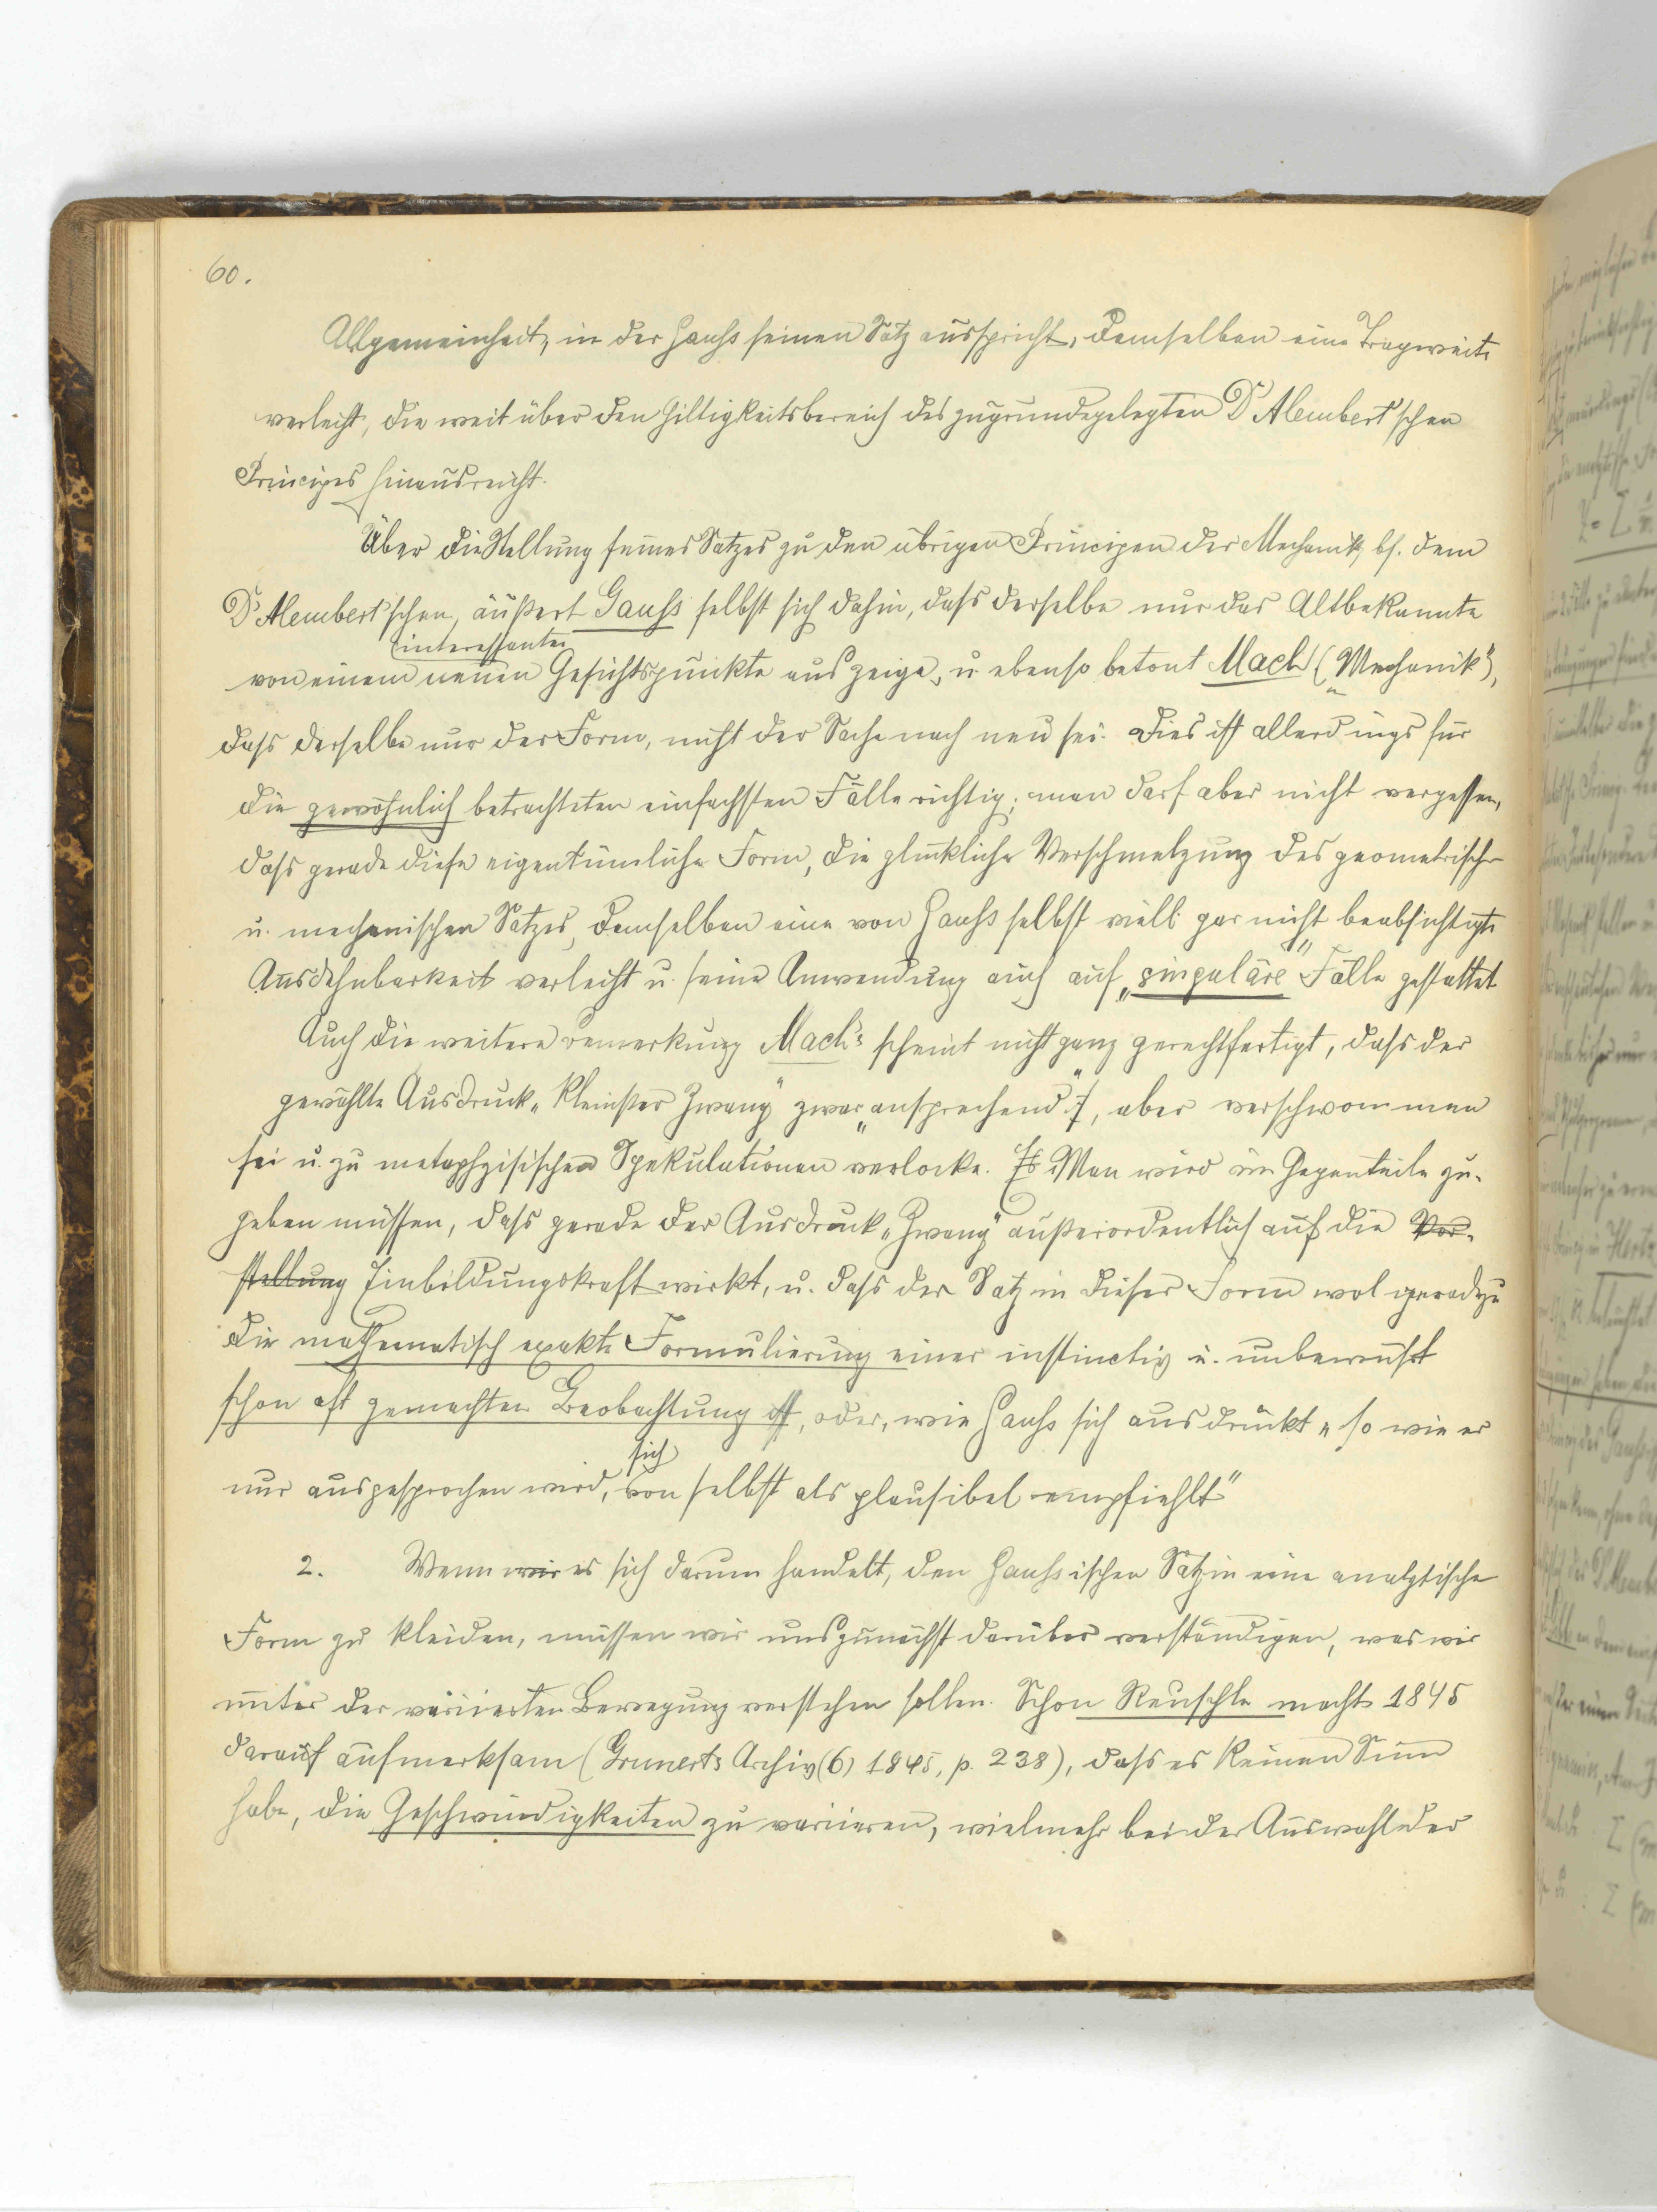 60.
Allgemeinheit, in der Gauss seinen Satz ausspricht, demselben eine Tragweite
verleiht, die weit über den Giltigkeitsbereich des zugrundegelegten D'Alembert'schen
Principes hinausreicht.
Über die Stellung seines Satzes zu den übrigen Principen der Mechanik, bs. dem
D'Alembert'schen, äußert Gauss selbst sich dahin, dass derselbe nur das Altbekannte
interessanten
von einem neuen Gesichtspunkte aus zeige, u. ebenso betont Mach („Mechanik"),
dass derselbe nur der Form, nicht der Sache nach neu sei. Dies ist allerdings für
die gewöhnlich betrachteten einfachsten Fälle richtig; man darf aber nicht vergessen,
dass gerade diese eigentümliche Form, die glückliche Verschmelzung des geometrischen
u. mechanischen Satzes, demselben eine von Gauss selbst viell. gar nicht beabsichtigte
Ausdehnbarkeit verleiht u. seine Anwendung auch auf „singuläre" Fälle gestattet
Auch die weitere Bemerkung Mach's scheint nicht ganz gerechtfertigt, dass der
gewählte Ausdruck „kleinster Zwang" zwar „ansprechend", aber verschwommen
sei u. zu metaphysischen Spekulationen verlocke. Es Man wird im Gegenteile zu-
geben müssen, dass gerade der Ausdruck „Zwang" außerordentlich auf die Vor-
stellung Einbildungskraft wirkt, u. dass der Satz in dieser Form wol geradezu
die mathematisch exakte Formulierung einer instinctiv u. unbewusst
schon oft gemachten Beobachtung ist, oder, wie Gauss sich ausdrückt „so wie er
sich
nur ausgesprochen wird, von selbst als plausibel empfiehlt"
2. Wenn wir es sich darum handelt, den Gauss'ischen Satz in eine analytische
Form zu kleiden, müssen wir uns zunächst darüber verständigen, was wir
unter der variierten Bewegung verstehen sollen. Schon Reuschle macht 1845
darauf aufmerksam (Grunerts Archiv (6) 1845, p. 238), dass es keinen Sinn
habe, die Geschwindigkeiten zu variieren, vielmehr bei der Auswahl der